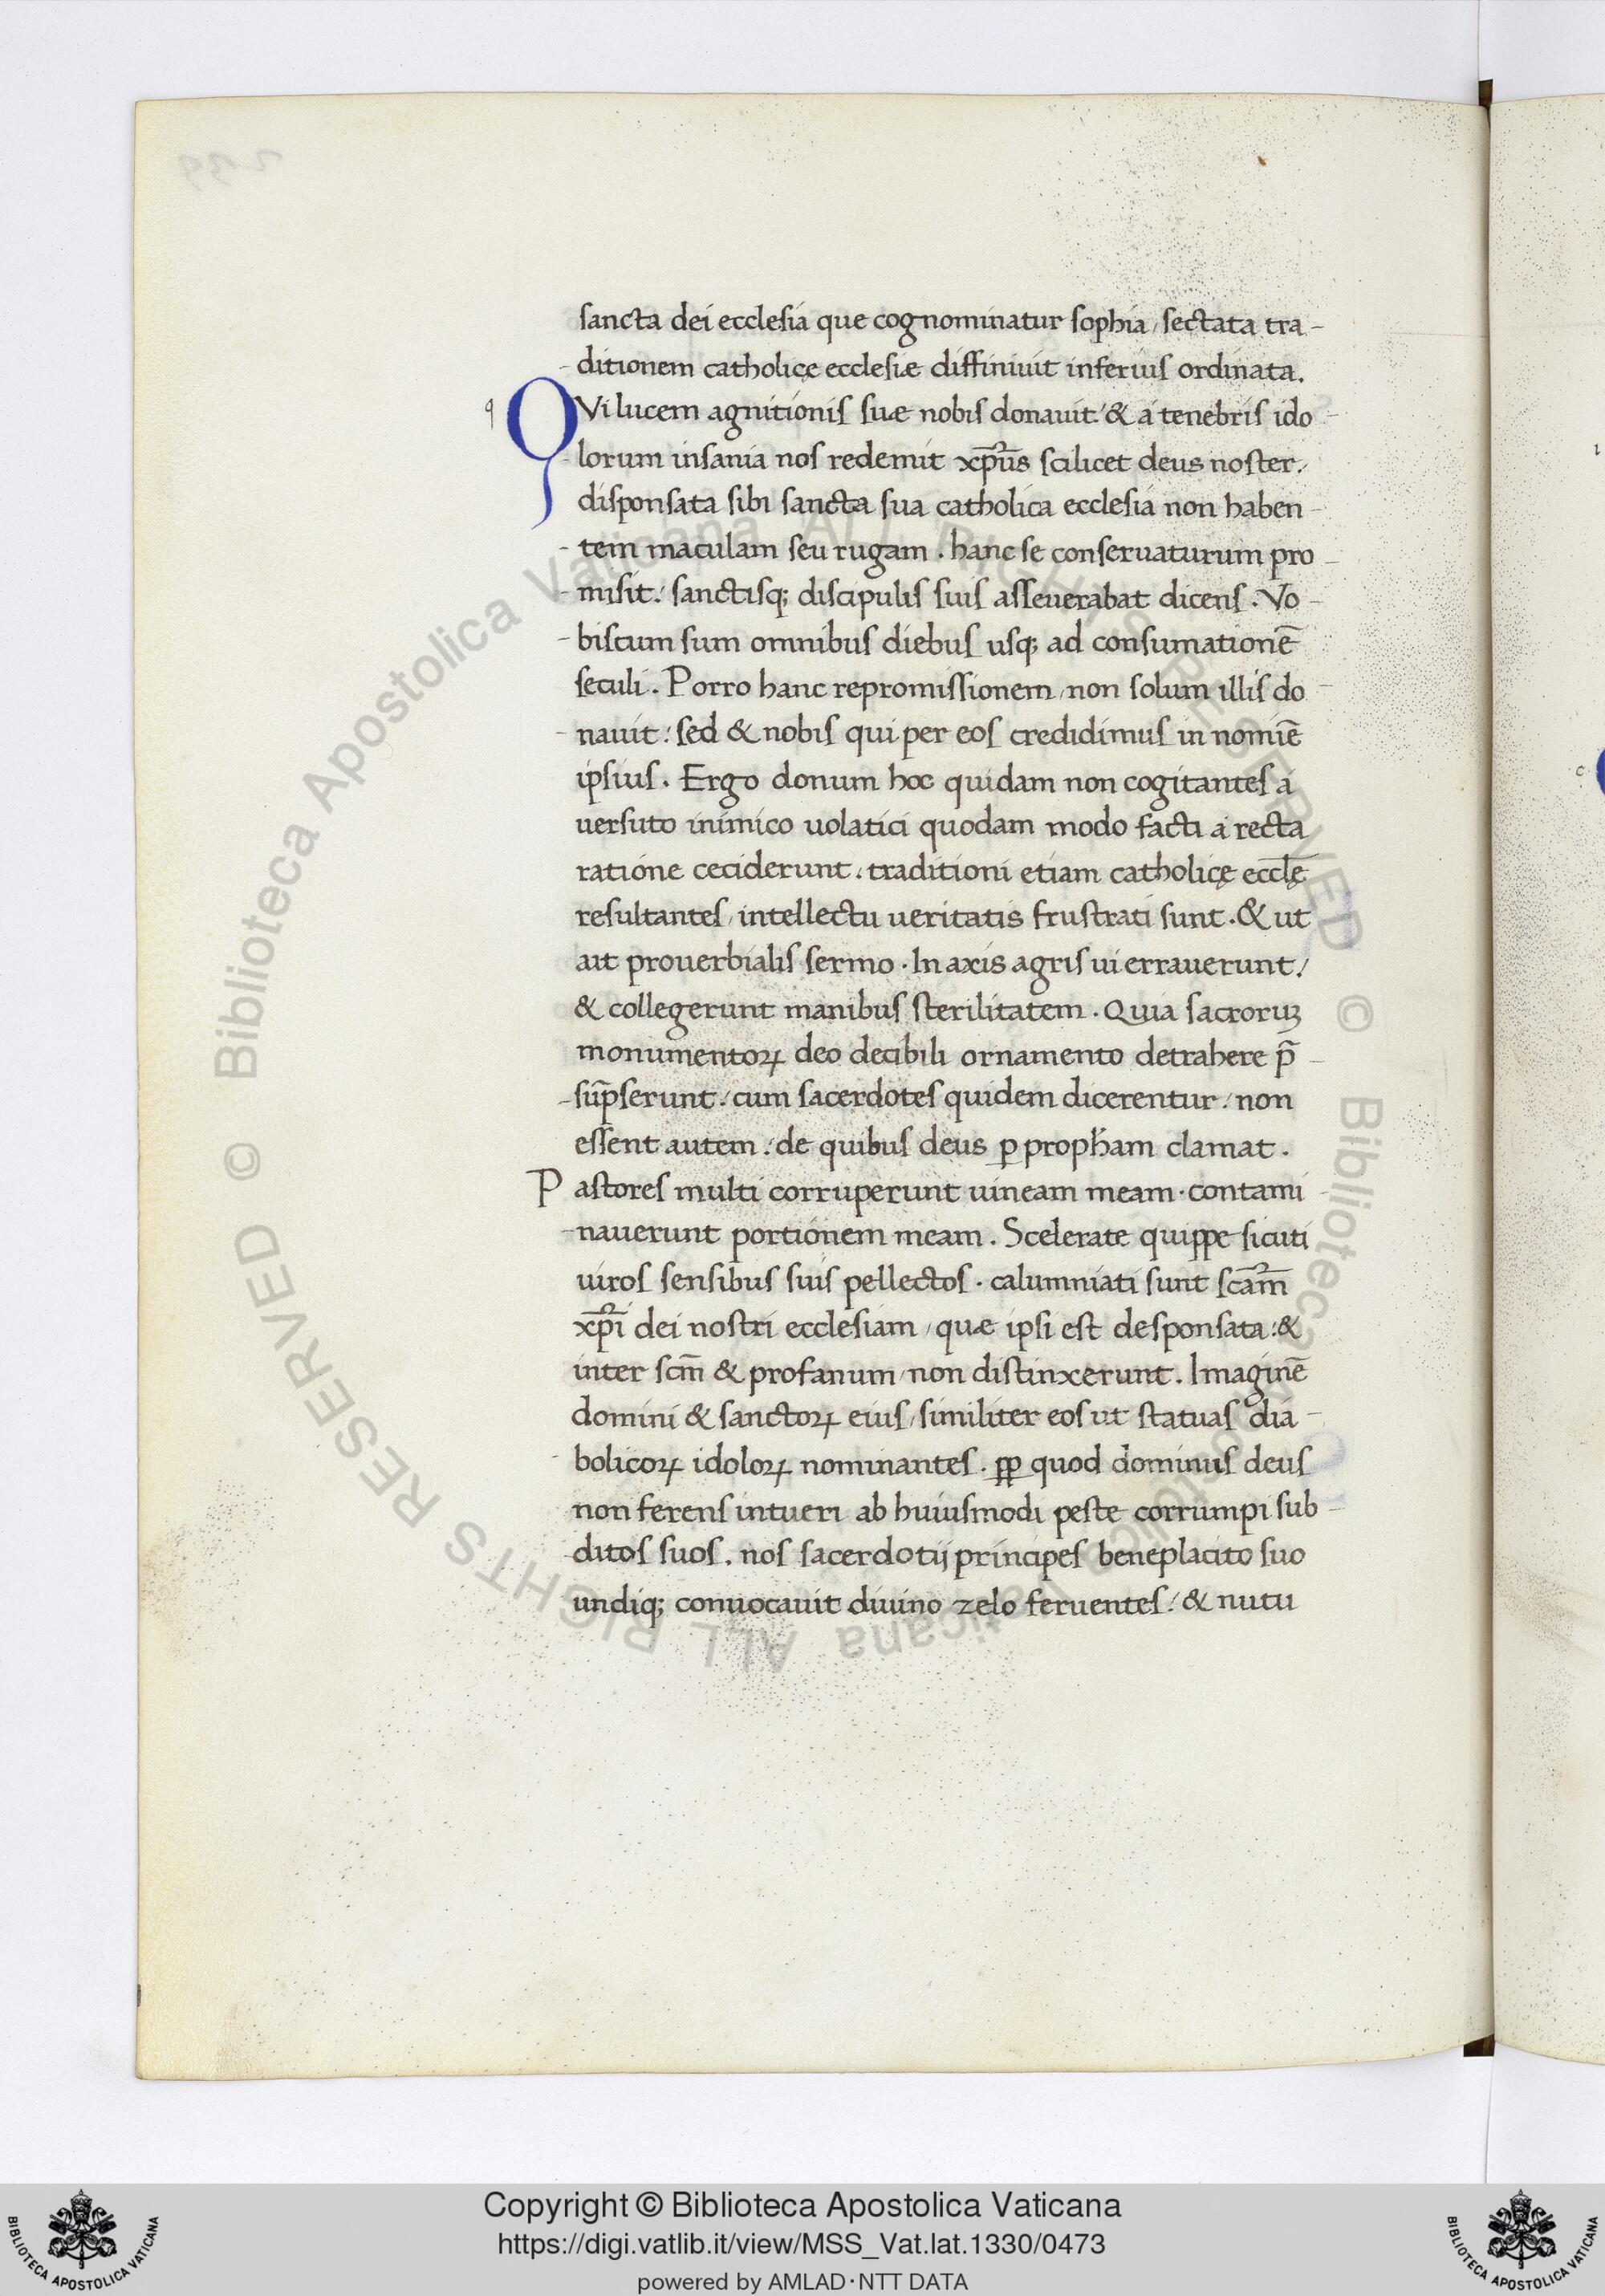 sancta dei ecclesia que cognominatur sophia, sectata tra-
-ditionem catholicę ecclesiæ diffiniuit inferius ordinata.
q QVi lucem agnitionis suæ nobis donauit: & a tenebris ido-
-lorum insania nos redemit xp̅us scilicet deus noster.
disponsata sibi sancta sua catholica ecclesia non haben-
-tem maculam seu rugam. hanc se conseruaturum pro-
-misit: sanctisq; discipulis suis asseuerabat dicens. Vo-
-biscum sum omnibus diebus usq; ad consumationē
seculi. Porro hanc repromissionem, non solum illis do-
-nauit: sed & nobis qui per eos credidimus in nomiē
ipsius. Ergo donum hoc quidam non cogitantes a
uersuto inimico uolatici quodam modo facti a recta
ratione ceciderunt. traditioni etiam catholicę eccl̅ę
resultantes, intellectu ueritatis frustrati sunt. & ut
ait prouerbialis sermo. In axis agris ui errauerunt:
& collegerunt manibus sterilitatem. Quia sacroruꝫ
monumentoꝝ deo decibili ornamento detrahere p̄-
-sūpserunt: cum sacerdotes quidem dicerentur: non
essent autem: de quibus deus ꝑ propħam clamat.
Pastores multi corruperunt uineam meam. contami-
-nauerunt portionem meam. Scelerate quippe sicuti
uiros sensibus suis pellectos. calumniati sunt scām
xp̅i dei nostri ecclesiam, quæ ipsi est desponsata: &
inter scm̅ & profanum, non distinxerunt. Imaginē
domini & sanctoꝝ eius, similiter eos ut statuas dia-
-bolicoꝝ idoloꝝ nominantes. ꝓꝑ quod dominus deus
non ferens intueri ab huiusmodi peste corrumpi sub-
ditos suos. nos sacerdotij principes beneplacito suo
undiq; conuocauit diuino zelo feruentes: & nutu
© Biblioteca Apostolica Vaticana ALL RIGHTS RESERVED
© Biblioteca Apostolica Vaticana ALL RIGHTS RESERVED
Copyright © Biblioteca Apostolica Vaticana
https://digi.vatlib.it/view/MSS_Vat.lat.1330/0473
powered by AMLAD·NTT DATA
BIBLIOTECA APOSTOLICA VATICANA
BIBLIOTECA APOSTOLICA VATICANA